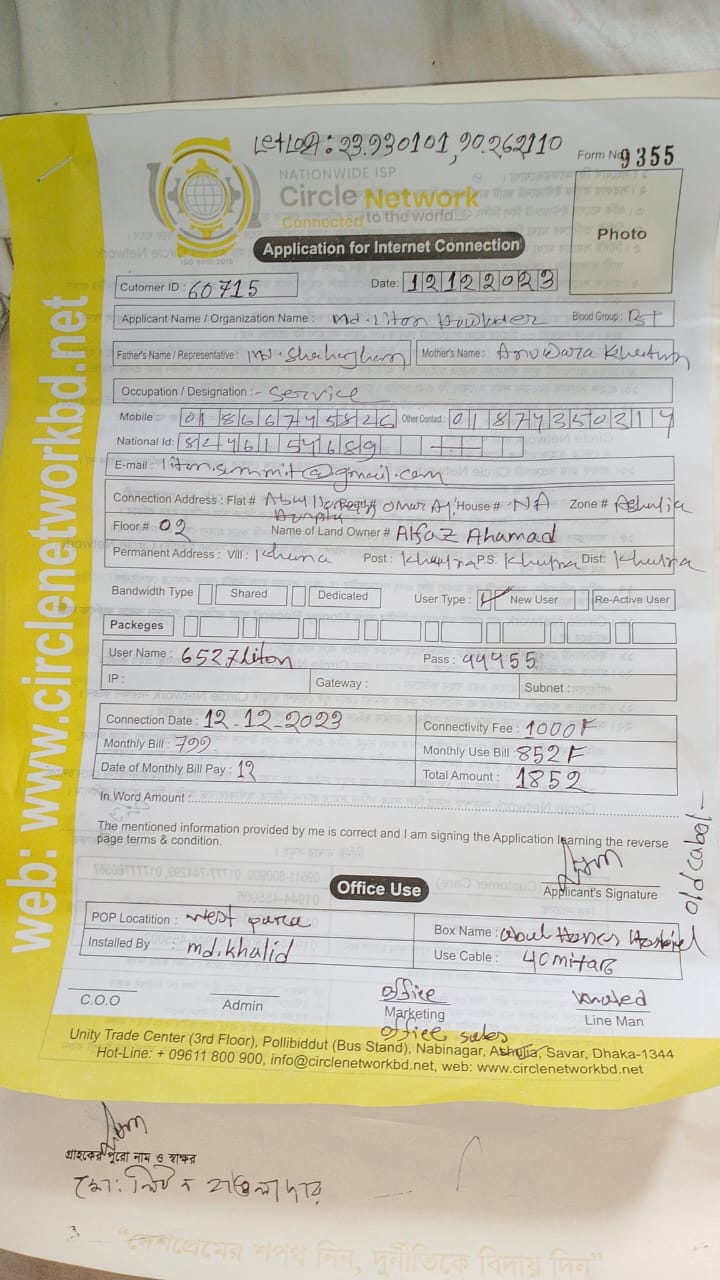 Let Log: 23.930101, 90.262110
Form No 9355
NATIONWIDE ISP
Circle Network
Connected to the world
ISO 9001:2015
Photo
Application for Internet Connection
Cutomer ID: 60715
Date: 12122023
Applicant Name / Organization Name : Md. Liton Howlader Blood Group: B+
Father's Name / Representative : Mother's Name : Anwara Khatun
Occupation / Designation :- Service
Mobile : 01866745826 Other Contact: 01874350314
National Id: 8246154689
E-mail : liton.summit@gmail.com
Connection Address : Flat # Abul House # NA Zone # Ashulia
Floor # 02 Name of Land Owner # Alfaz Ahamad
Permanent Address : Vill: Khulna Post : Khulna P.S. Khulna Dist: Khulna
Bandwidth Type Shared Dedicated User Type : New User Re-Active User
Packeges
User Name : 6527liton Pass : 44455
IP : Gateway : Subnet :
Connection Date : 12-12-2023 Connectivity Fee : 1000F
Monthly Bill : 799 Monthly Use Bill : 852F
Date of Monthly Bill Pay : 12 Total Amount : 1852
In Word Amount :
The mentioned information provided by me is correct and I am signing the Application learning the reverse
page terms & condition.
old cabol-
Applicant's Signature
Office Use
POP Locatition : west para Box Name : abul Hostel
Installed By : md. Khalid Use Cable : 40 mitar
C.O.O Admin office Marketing Line Man
office sales
Unity Trade Center (3rd Floor), Pollibiddut (Bus Stand), Nabinagar, Ashulia, Savar, Dhaka-1344
Hot-Line: + 09611 800 900, info@circlenetworkbd.net, web: www.circlenetworkbd.net
web: www.circlenetworkbd.net
গ্রাহকের পুরো নাম ও স্বাক্ষর
মো: লিটন হাওলাদার
“দেশপ্রেমের শপথ নিন, দুর্নীতিকে বিদায় দিন”